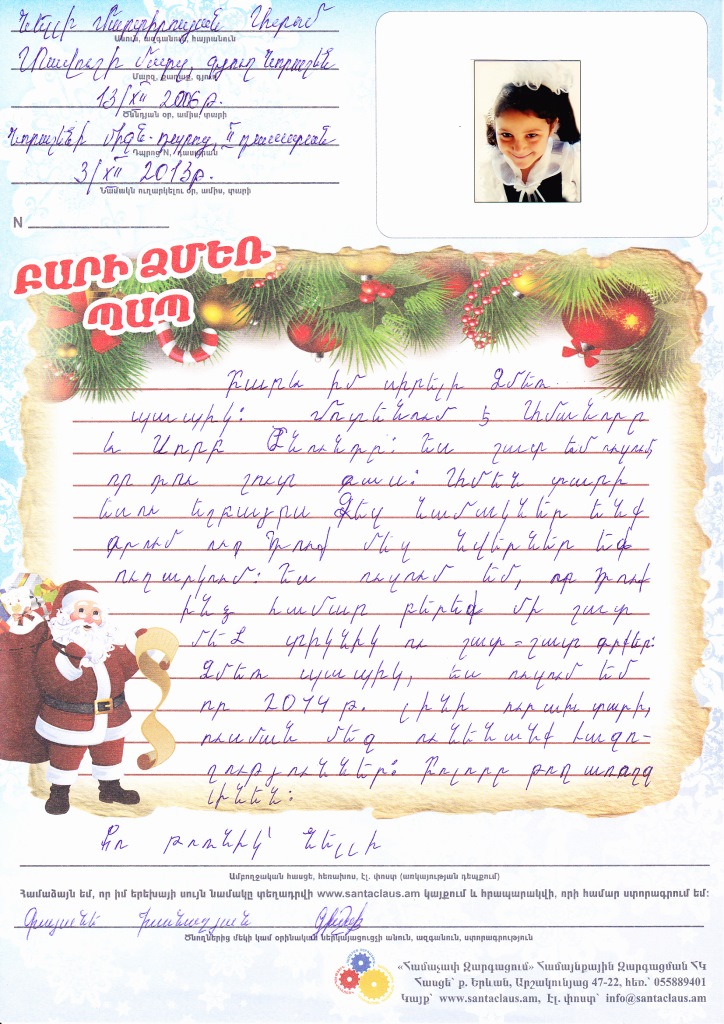 Նելլի Մարտիրոսյան Արամ
Անուն, ազգանուն, հայրանուն
Տավուշի մարզ, գյուղ Նորաշեն
Մարզ, քաղաք, գյուղ
13/XII 2006թ.
Ծննդյան օր, ամիս, տարի
Նորաշենի միջն. դպրոց, II դասարան
Դպրոց N, դասարան
3/XII 2013թ.
Նամակն ուղարկելու օր, ամիս, տարի
N
ԲԱՐԻ ՁՄԵՌ
ՊԱՊ
Բարև իմ սիրելի Ձմեռ
պապիկ: Մոտենում է Ամանորը
և Սուրբ Ծնունդը: Ես շատ եմ ուզում,
որ դու շուտ գաս: Ամեն տարի
ես ու եղբայրս Ձեզ նամակներ ենք
գրում ու Դուք մեզ նվերներ եք
ուղարկում: Ես ուզում եմ, որ Դուք
ինձ համար բերեք մի շատ
մեծ տիկնիկ ու շատ-շատ գրքեր:
Ձմեռ պապիկ, ես ուզում եմ
որ 2014 թ. լինի ուրախ տարի,
ուսման մեջ ունենանք հաջո-
ղություններ: Բոլորը թող առողջ
լինեն:
Քո թոռնիկ՝ Նելլի
Ամբողջական հասցե, հեռախոս, էլ. փոստ (առկայության դեպքում)
Համաձայն եմ, որ իմ երեխայի սույն նամակը տեղադրվի www.santaclaus.am կայքում և հրապարակվի, որի համար ստորագրում եմ:
Գայանե
Ծնողներից մեկի կամ օրինական ներկայացուցչի անուն, ազգանուն, ստորագրություն
«Համաչափ Զարգացում» Համայնքային Զարգացման ՀԿ
Հասցե՝ ք. Երևան, Արշակունյաց 47-22, հեռ.՝ 055889401
Կայք՝ www.santaclaus.am, էլ. փոստ՝ info@santaclaus.am